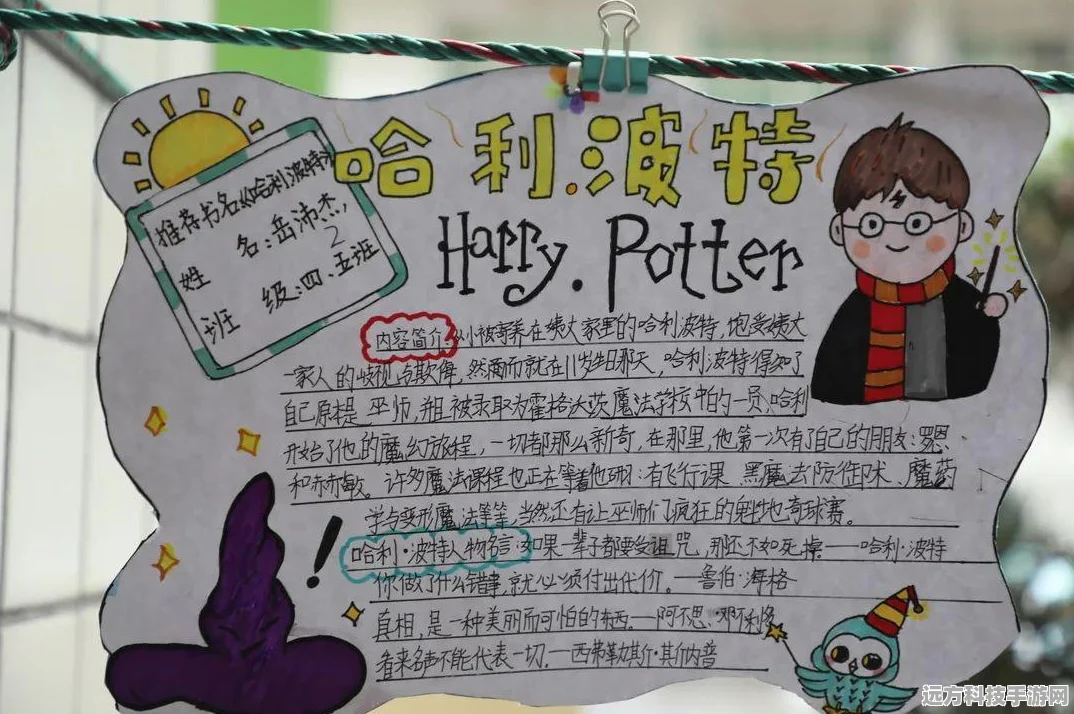 哈利.波特
Harry.Potter
推荐书名《哈利波特》
姓 名:岳沛杰,
2
班 级:四.五班
内容简介 从小被寄养在姨丈家里的哈利波特,饱受姨丈
一家人的歧视与欺侮,然而就在11岁生日那天,哈利波特得知了
自己原本是巫师,并且被录取为霍格沃茨魔法学校中的一员.哈利
开始了他的魔幻旅程,一切都那么新奇,在那里,他第一次有了自己的朋友:罗恩、
和赫敏。许多魔法课程也正在等着他们:有飞行课 黑魔法防御术、魔药
学与变形魔法等等,当然还有让巫师们疯狂的魁地奇球赛。
哈利·波特人物名言:如果一辈子都要受诅咒,那还不如死掉——哈利·波特
你做了什么错事,就必须付出代价。—鲁伯·海格
真相,是一种美丽而可怕的东西.——阿不思·邓利
看来名声不能代表一切.——西弗勒斯·斯内普
远方科技手游网